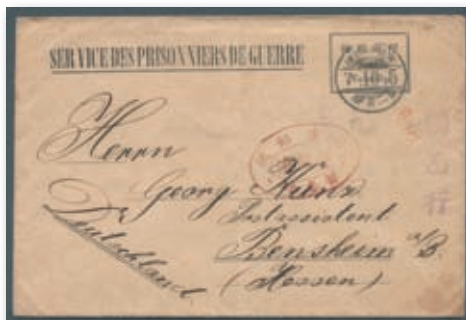 SERVICE DES PRISONNIERS DE GUERRE
Herrn
Georg Kunz
Postassistent
Bensheim a/B.
(Hessen)
Deutschland